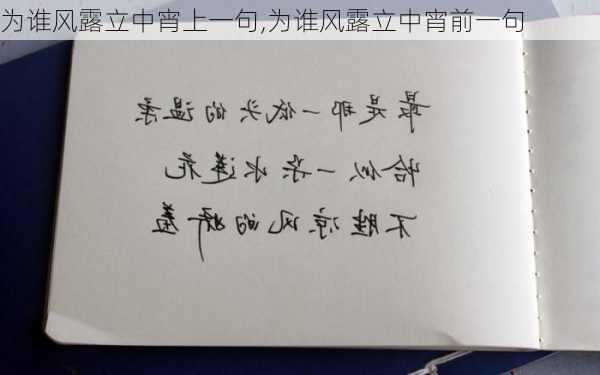 为谁风露立中宵上一句,为谁风露立中宵前一句
最是那一低头的温柔
恰似一朵水莲花
不胜凉风的娇羞